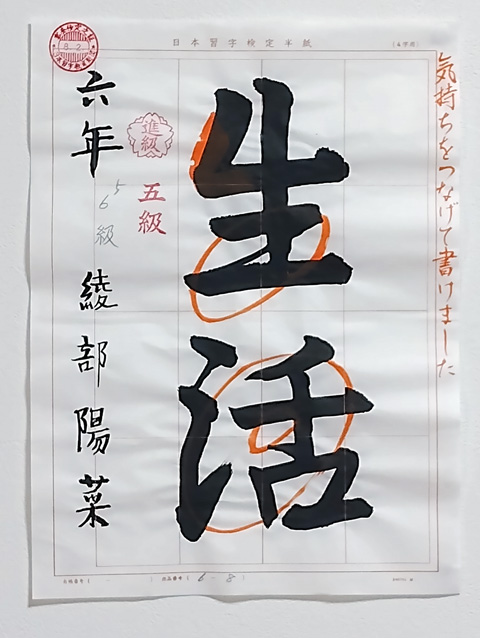 日本習字検定半紙
気持ちをつなげて書けました
生活
進級
五級
5
6級
六年 綾部陽菜
8.2
6-8